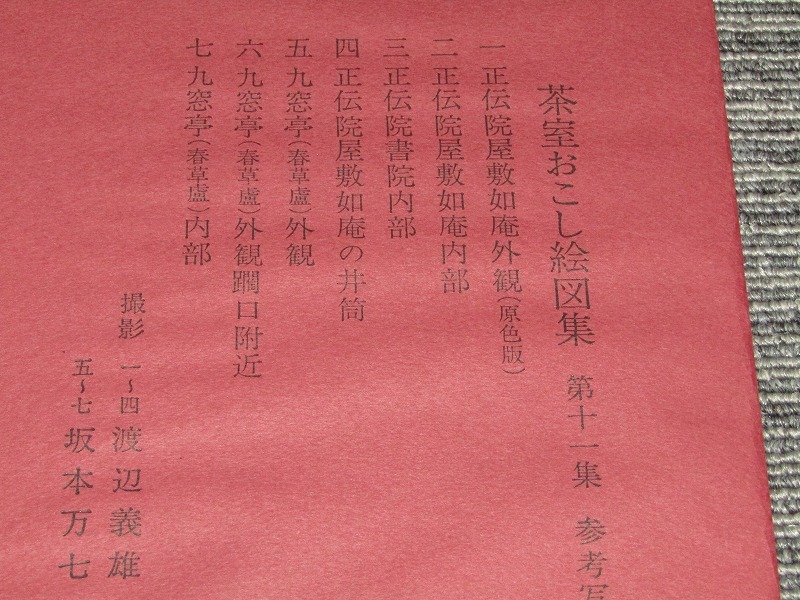 茶室おこし絵図集 第十一集 参考写
一 正伝院屋敷如庵外観(原色版)
二 正伝院屋敷如庵内部
三 正伝院書院内部
四 正伝院屋敷如庵の井筒
五 九窓亭(春草盧)外観
六 九窓亭(春草盧)外観躙口附近
七 九窓亭(春草盧)内部
撮影 一~四 渡辺義雄
五~七 坂本万七